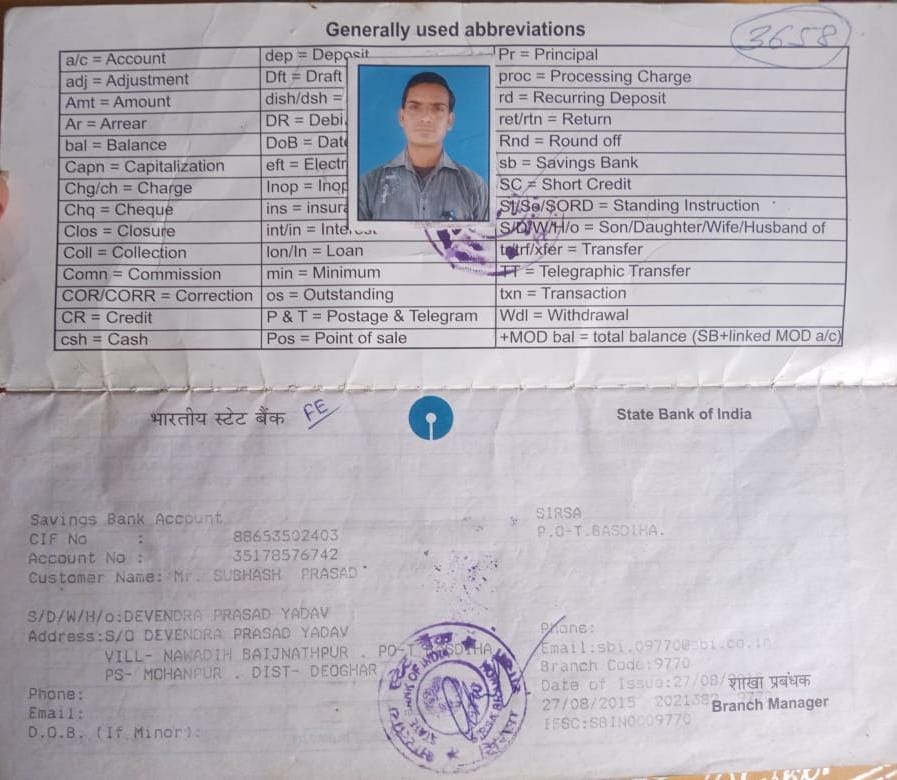 Generally used abbreviations
3658
a/c = Account
adj = Adjustment
Amt = Amount
Ar = Arrear
bal = Balance
Capn = Capitalization
Chg/ch = Charge
Chq = Cheque
Clos = Closure
Coll = Collection
Comn = Commission
COR/CORR = Correction
CR = Credit
csh = Cash
dep = Deposit
Dft = Draft
dish/dsh =
DR = Debi
DoB = Dat
eft = Electr
Inop = Inop
ins = insura
int/in = Interest
lon/ln = Loan
min = Minimum
os = Outstanding
P & T = Postage & Telegram
Pos = Point of sale
Pr = Principal
proc = Processing Charge
rd = Recurring Deposit
ret/rtn = Return
Rnd = Round off
sb = Savings Bank
SC = Short Credit
SI/So/SORD = Standing Instruction
S/D/W/H/o = Son/Daughter/Wife/Husband of
trf/xfer = Transfer
TT = Telegraphic Transfer
txn = Transaction
Wdl = Withdrawal
+MOD bal = total balance (SB+linked MOD a/c)
भारतीय स्टेट बैंक FE
State Bank of India
Savings Bank Account
CIF No : 88653502403
Account No : 35178576742
Customer Name: Mr. SUBHASH PRASAD
S/D/W/H/o:DEVENDRA PRASAD YADAV
Address:S/O DEVENDRA PRASAD YADAV
VILL- NAWADIH BAIJNATHPUR . PO-T BASDIHA
PS- MOHANPUR . DIST- DEOGHAR
Phone:
Email:
D.O.B. (If Minor):
SIRSA
P.O-T.BASDIHA.
Phone:
Email:sbi.09770@sbi.co.in
Branch Code:9770
Date of Issue:27/08/
27/08/2015
IFSC:SBIN0009770
शाखा प्रबंधक
Branch Manager
STATE BANK OF INDIA